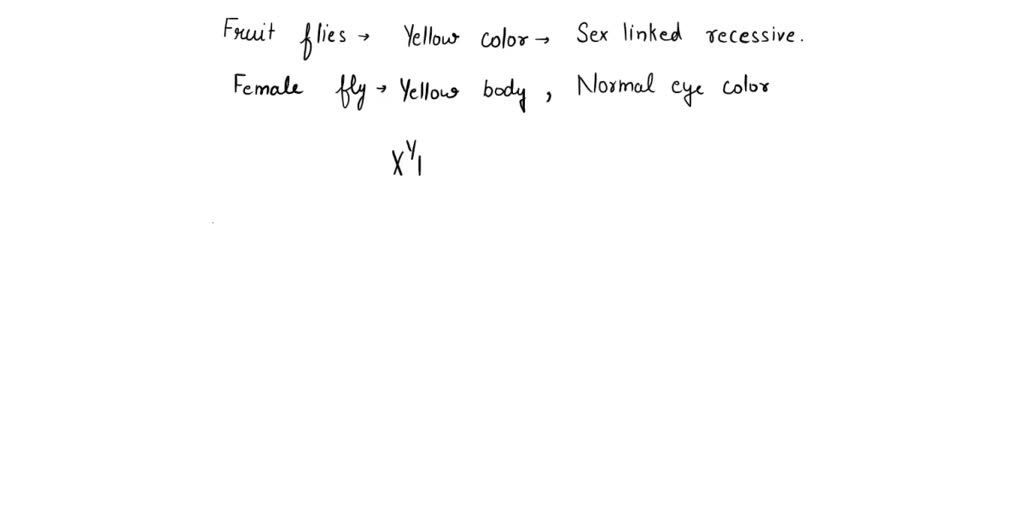 Fruit flies → Yellow color → Sex linked recessive.
Female fly → Yellow body, Normal eye color
X^Y|